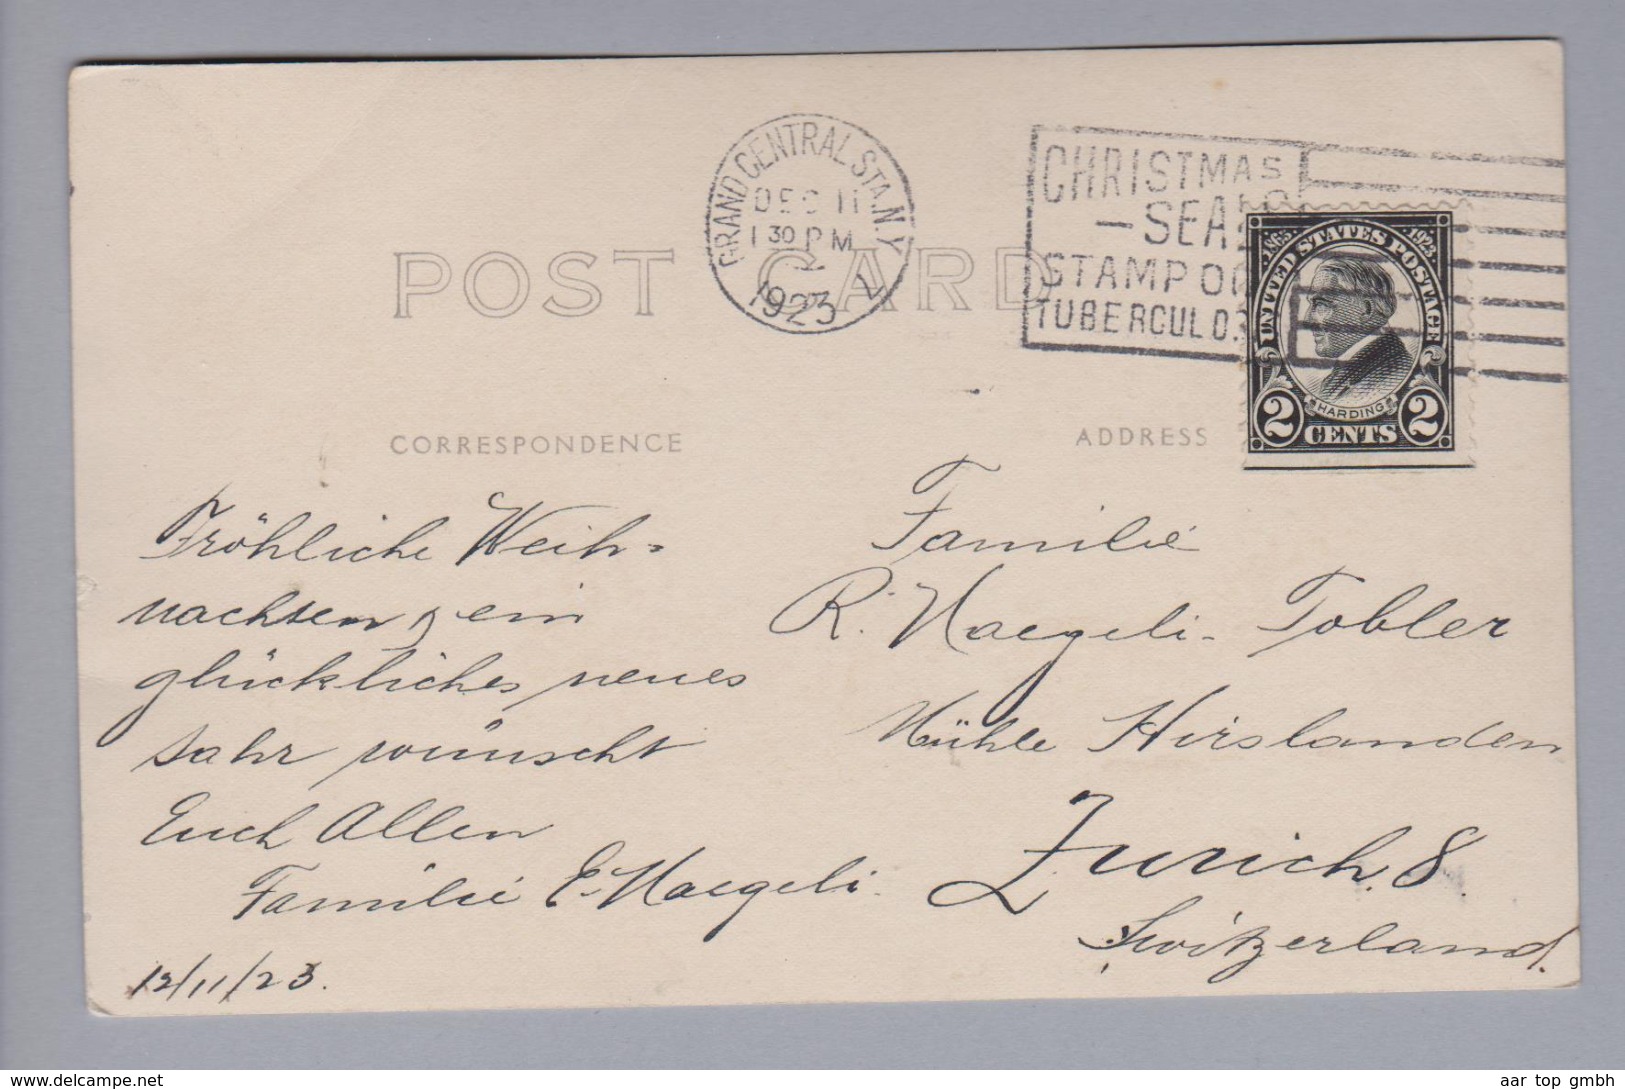 GRAND CENTRAL STA. N.Y.
DEC 11
1 30 PM
1923
CHRISTMAS
SEALS
STAMP OUT
TUBERCULO
POST CARD
1865 1923
UNITED STATES POSTAGE
HARDING
2 CENTS 2
CORRESPONDENCE
ADDRESS
Fröhliche Weih=
nachten & ein
glückliches neues
Jahr wünscht
Euch Allen
Familie E. Naegeli.
12/11/23.
Familie
R. Naegeli-Tobler
Mühle Hirslanden
Zurich. 8.
Switzerland.
delcampe.net
aar top gmbh